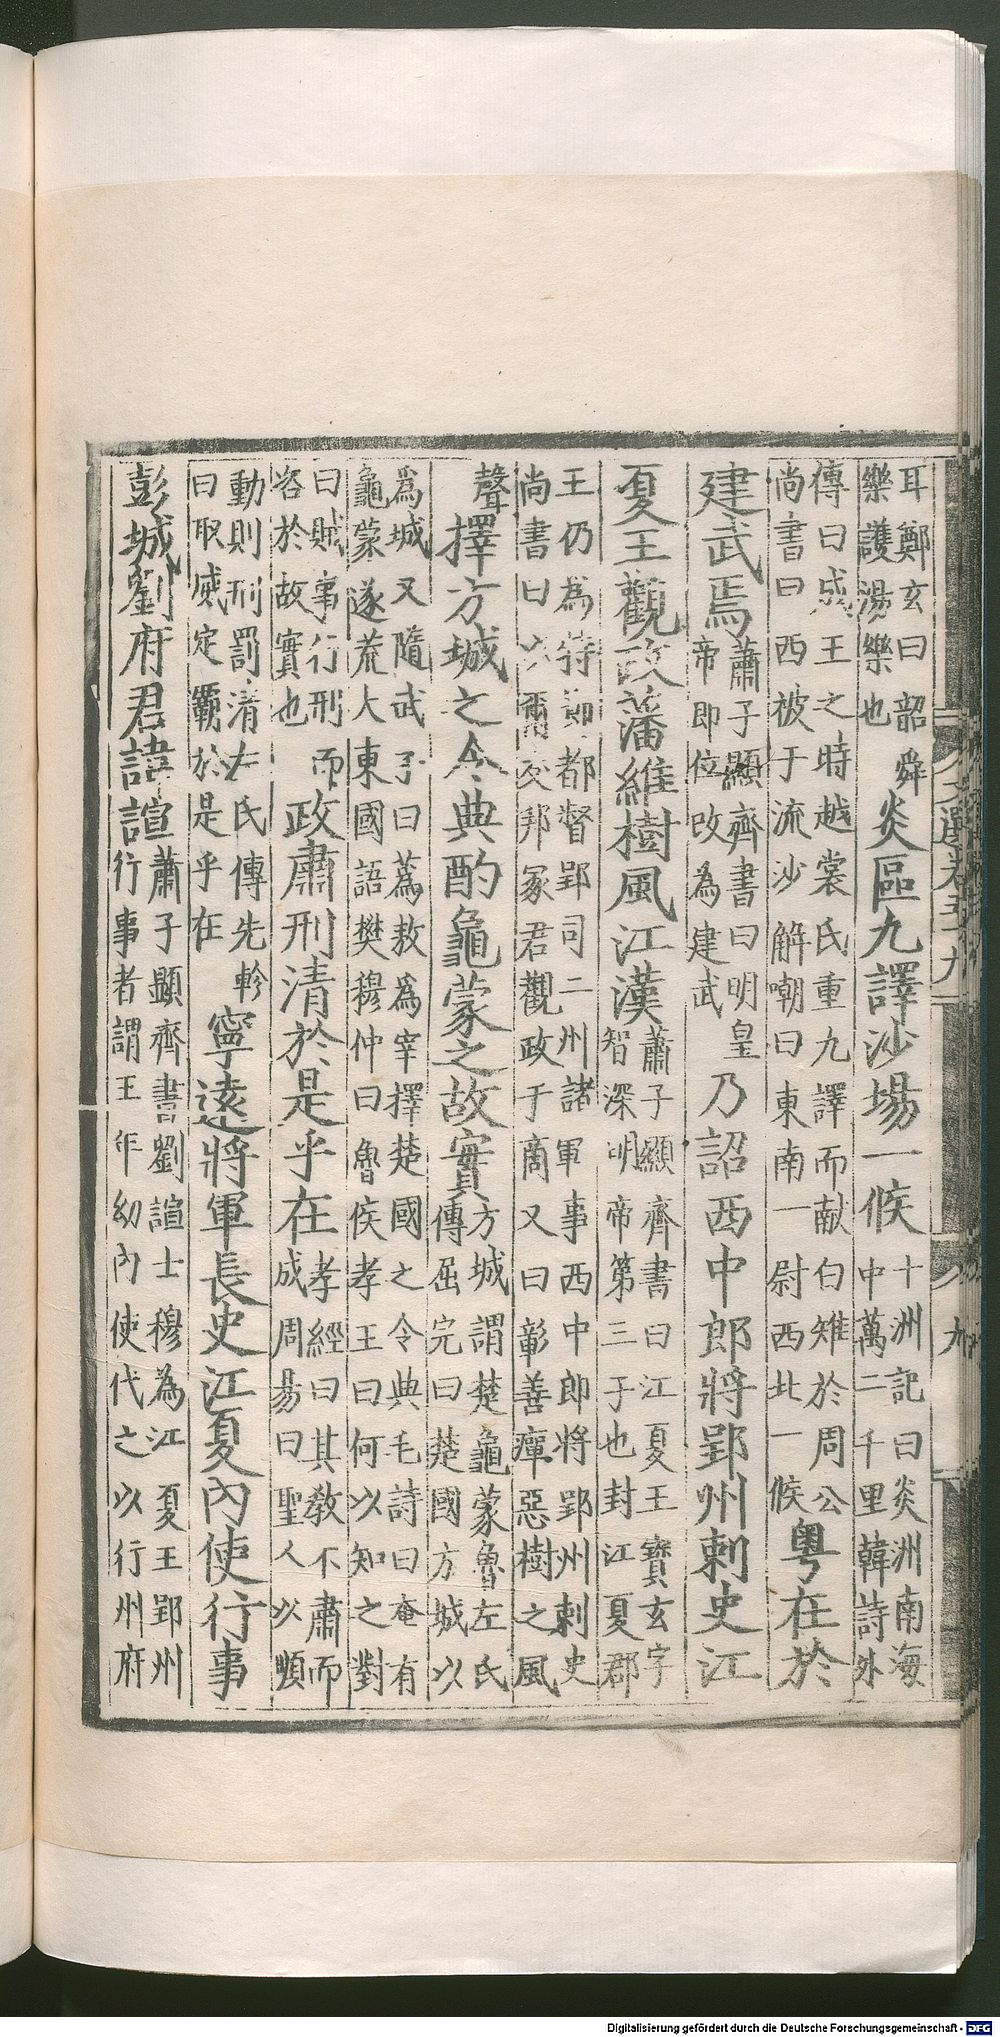 文選卷五十九
九
耳鄭玄曰韶舜
樂護湯樂也
炎區九譯沙場一候
十洲記曰炎洲南海
中萬二千里韓詩外
傳曰成王之時越裳氏重九譯而献白雉於周公
尚書曰西被于流沙解嘲曰東南一尉西北一候
粤在於
建武焉
蕭子顯齊書曰明皇
帝即位改為建武
乃詔西中郎將郢州刺史江
夏王觀政藩維樹風江漢
蕭子顯齊書曰江夏王寳玄字
智深明帝第三子也封江夏郡
王仍為持節都督郢司二州諸軍事西中郎將郢州刺史
尚書曰以爾友邦冢君觀政于商又曰彰善癉惡樹之風
聲
擇方城之令典酌龜蒙之故實
方城謂楚龜蒙魯左氏
傳屈完曰楚國方城以
爲城又隨武子曰蒍敖爲宰擇楚國之令典毛詩曰奄有
龜蒙遂荒大東國語樊穆仲曰魯侯孝王曰何以知之對
曰賦事行刑而
咨於故實也
政肅刑清於是乎在
孝經曰其教不肅而
成周易曰聖人以順
動則刑罰清左氏傳先軫
曰取威定霸於是乎在
寧遠將軍長史江夏內使行事
彭城劉府君諱諠
蕭子顯齊書劉諠士穆為江夏王郢州
行事者謂王年幼內使代之以行州府
Digitalisierung gefördert durch die Deutsche Forschungsgemeinschaft - DFG